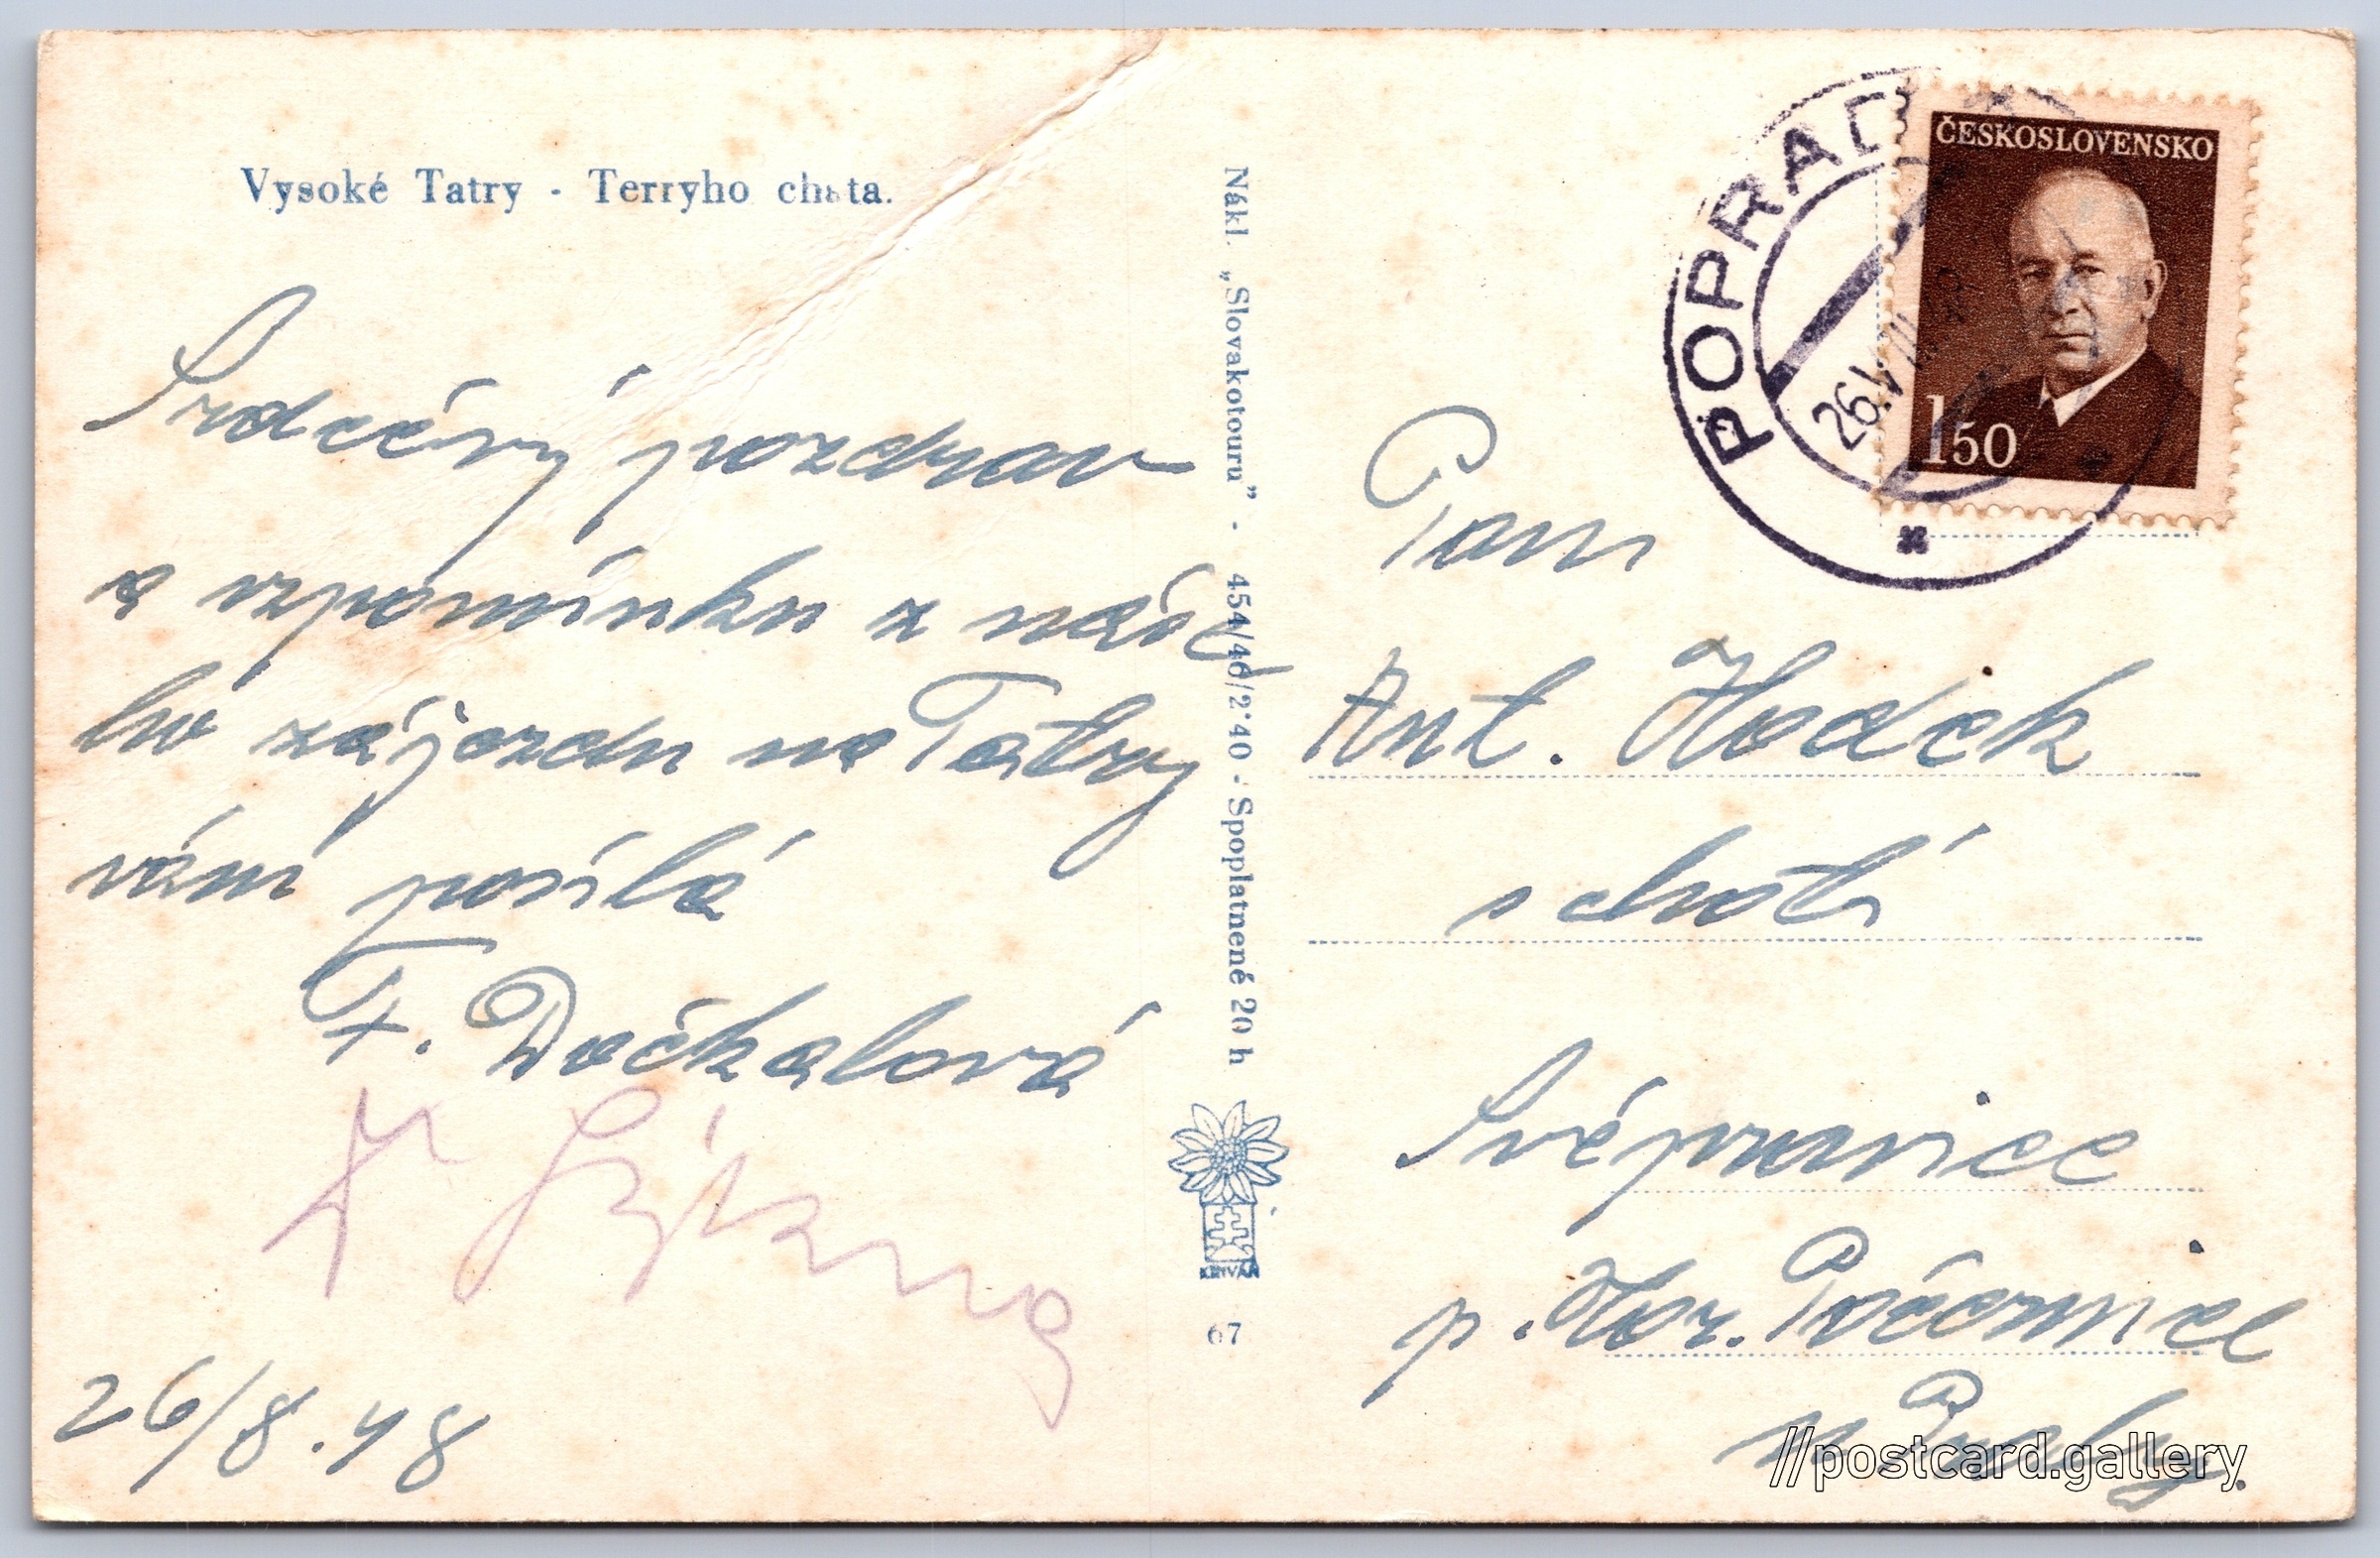 Vysoké Tatry - Terryho chata.
Srdečný pozdrav
a vzpomínku z naše
ho zájezdu na Tatry
vám posílá
F. Dočkalová
26/8.48
Nákl. „Slovakotouru” - 454/46/2·40 - Spoplatnené 20 h
KRIVÁŇ
67
POPRAD
26.VIII.48
ČESKOSLOVENSKO
1.50
Pan
Ant. Hodek
s chotí
Svépravice
p. Hor. Počernice
u Prahy.
//postcard.gallery